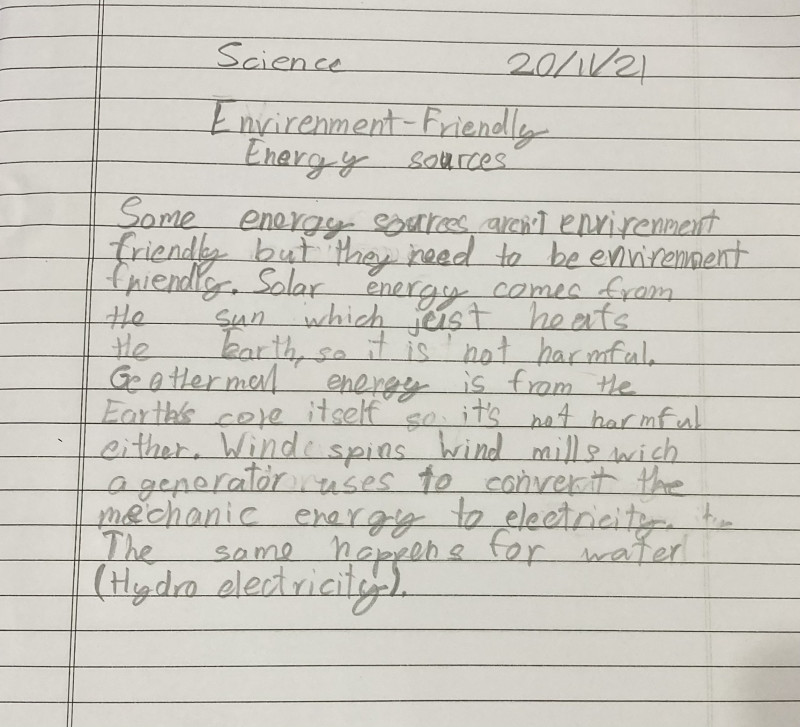 Science 20/11/21
Envirenment-Friendly
Energy sources
Some energy sources aren't envirenment
friendly but they need to be envirenment
friendly. Solar energy comes from
the sun which jeist heats
the Earth, so it is not harmful.
Geothermal energy is from the
Earth's core itself so it's not harmful
either. Wind spins wind mills wich
a generator uses to convert the
mechanic energy to electricity.
The same happens for water
(Hydro electricity).